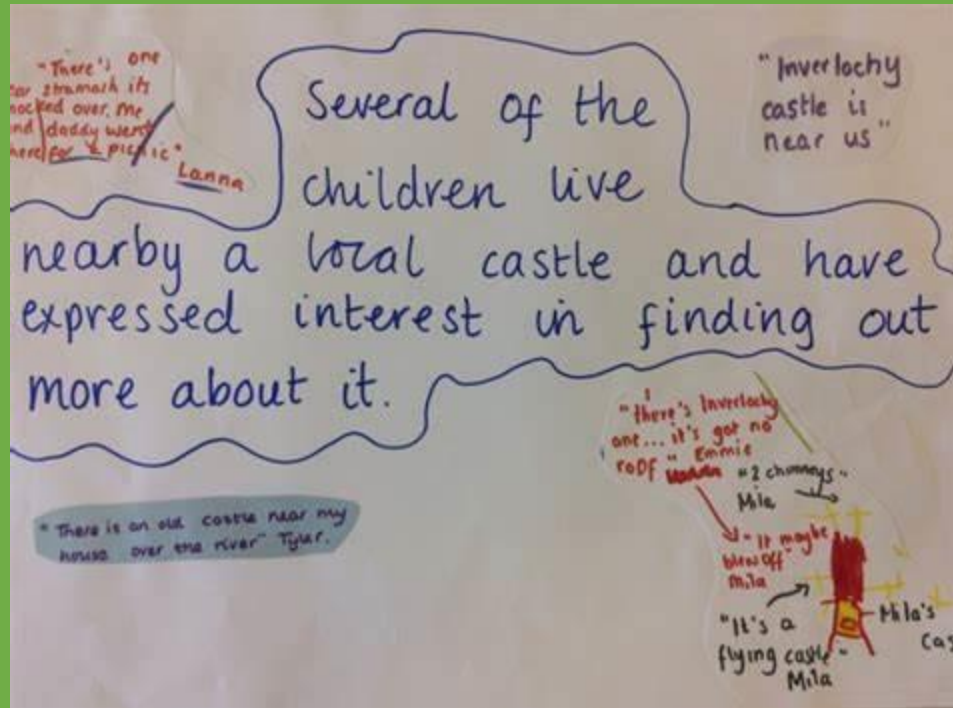 "There's one
stramash its
over, me
daddy went
for a picnic"
Lanna
Several of the
children live
nearby a local castle and have
expressed interest in finding out
more about it.
"Inverlochy
castle is
near us"
"There is an old castle near my
house over the river" Tylur.
"there's Inverlochy
one... it's got no
roof" Emmie
"2 chimneys"
Mila
"It maybe
blew off"
Mila
"It's a
flying castle"
Mila
Mila's